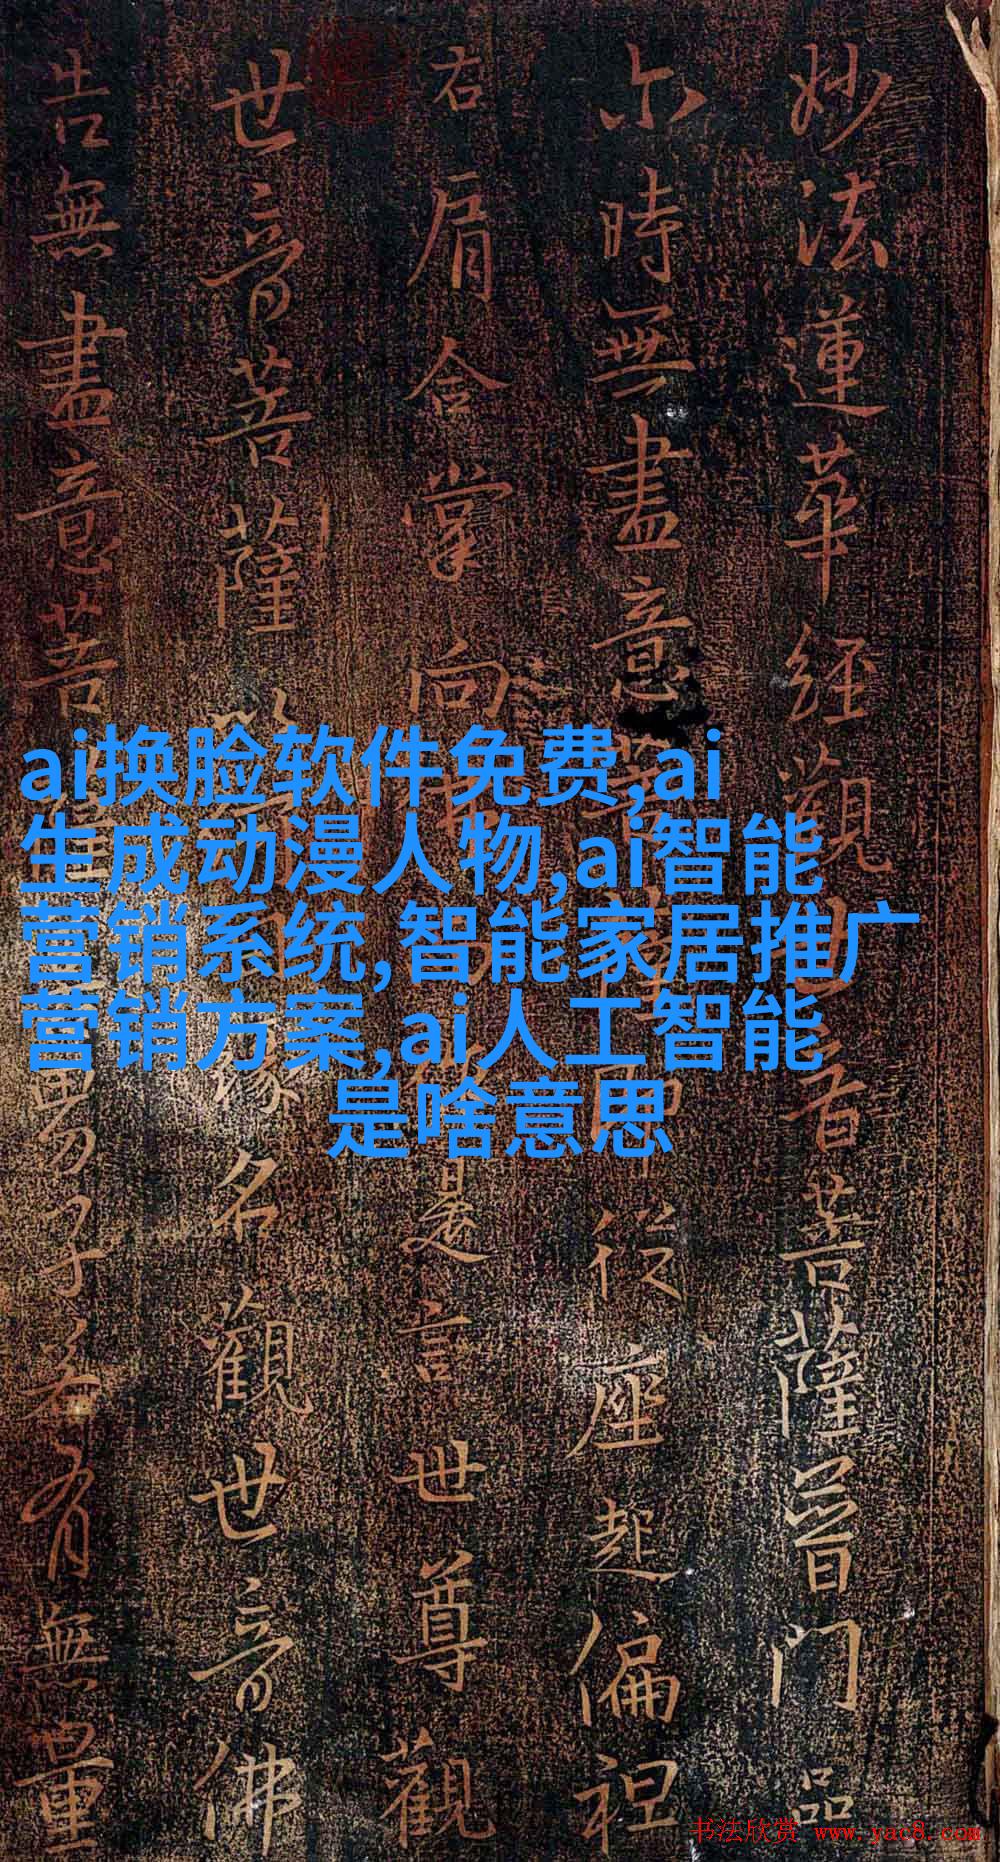 妙法蓮華經觀世音菩薩普門品
尒時無盡意菩薩即從座起偏袒
右肩合掌向作是言世尊觀
世音菩薩緣名觀世音佛
告無盡意菩男子若有無量
ai换脸软件免费,ai
生成动漫人物,ai智能
营销系统,智能家居推广
营销方案,ai人工智能
是啥意思
书法欣赏 www.yac8.com